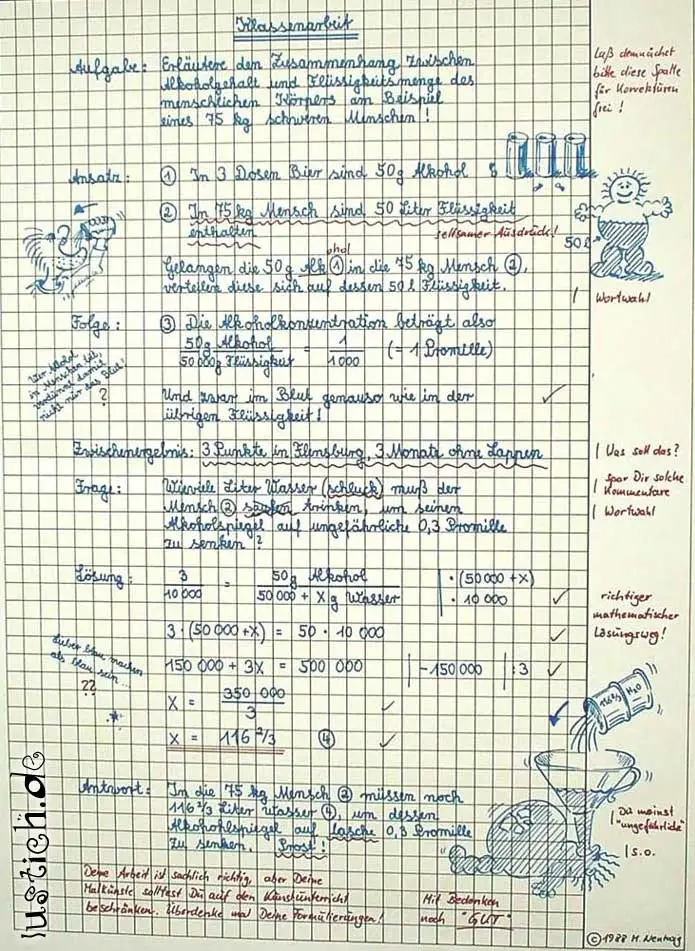 Klassenarbeit
Aufgabe: Erläutere den Zusammenhang zwischen
Alkoholgehalt und Flüssigkeitsmenge des
menschlichen Körpers am Beispiel
eines 75 kg schweren Menschen!
Laß demnächst
bitte diese Spalte
für Korrekturen
frei!
Ansatz: ① In 3 Dosen Bier sind 50g Alkohol
② In 75 kg Mensch sind 50 Liter Flüssigkeit
enthalten
seltsamer Ausdruck!
50 l
ohol
Gelangen die 50g Alk ① in die 75 kg Mensch ②,
verteilen diese sich auf dessen 50 l Flüssigkeit.
| Wortwahl
Folge: ③ Die Alkoholkonzentration beträgt also
50g Alkohol / 50000g Flüssigkeit = 1 / 1000 (= 1 Promille)
Wer Alkohol
in Menschen tut,
verdünnt damit
nicht nur das Blut!
?
Und zwar im Blut genauso wie in der
übrigen Flüssigkeit!
Zwischenergebnis: 3 Punkte in Flensburg, 3 Monate ohne Lappen
| Was soll das?
Frage: Wieviele Liter Wasser (schluck) muß der
Mensch ② saufen trinken, um seinen
Alkoholspiegel auf ungefährliche 0,3 Promille
zu senken?
| Spar Dir solche
Kommentare
| Wortwahl
Lösung: 3 / 10 000 = 50g Alkohol / 50 000 + X g Wasser | · (50 000 + X) · 10 000
3 · (50 000 + X) = 50 · 10 000
richtiger
mathematischer
Lösungsweg!
150 000 + 3X = 500 000 | -150 000 | :3
Lieber blau machen
als blau sein...
??
X = 350 000 / 3
X = 116 2/3 ④
116 2/3 H₂O
Antwort: In die 75 kg Mensch ② müssen noch
116 2/3 Liter Wasser ④, um dessen
Alkohohlspiegel auf lasche 0,3 Promille
zu senken. Prost!
| Du meinst
"ungefährliche"
| s.o.
Deine Arbeit ist sachlich richtig, aber Deine
Malkünste solltest Du auf den Kunstunterricht
beschränken. Überdenke mal Deine Formulierungen!
Mit Bedenken
noch "GUT"
lustich.de